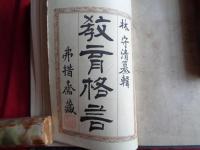 林守清纂輯
教育格言
弗措齋藏